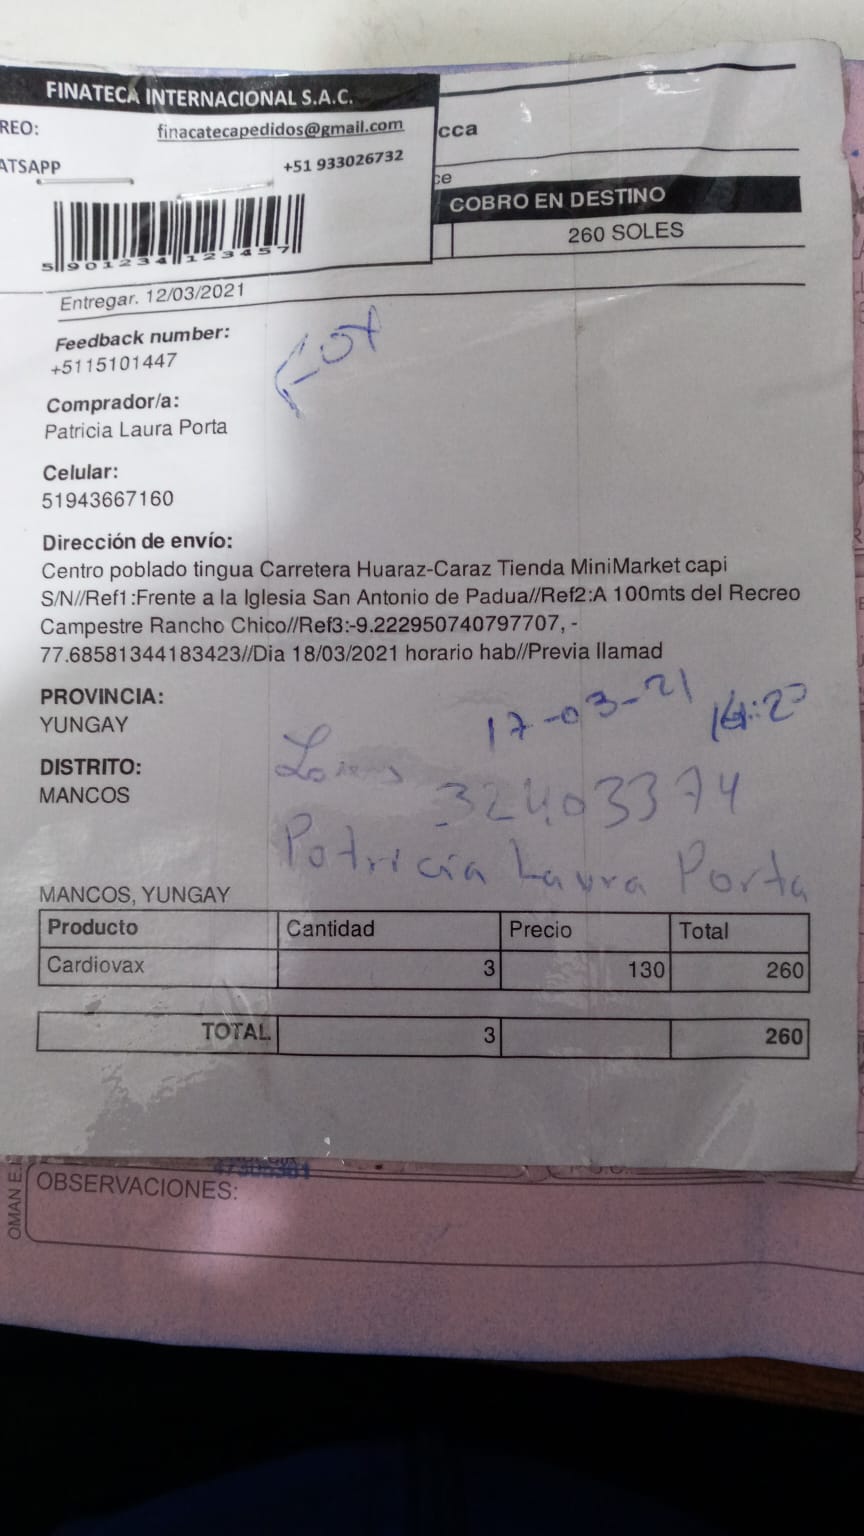 FINATECA INTERNACIONAL S.A.C.
REO: finacatecapedidos@gmail.com
ATSAPP +51 933026732
5 901234 123457
cca
ce
COBRO EN DESTINO
260 SOLES
Entregar. 12/03/2021
Feedback number:
+5115101447
Comprador/a:
Patricia Laura Porta
Celular:
51943667160
Dirección de envío:
Centro poblado tingua Carretera Huaraz-Caraz Tienda MiniMarket capi
S/N//Ref1:Frente a la Iglesia San Antonio de Padua//Ref2:A 100mts del Recreo
Campestre Rancho Chico//Ref3:-9.222950740797707, -
77.68581344183423//Dia 18/03/2021 horario hab//Previa llamad
PROVINCIA:
YUNGAY
17-03-21
DISTRITO:
MANCOS
32403374
Patricia Laura Porta
MANCOS, YUNGAY
Producto Cantidad Precio Total
Cardiovax 3 130 260
TOTAL 3 260
OMAN E.
OBSERVACIONES: